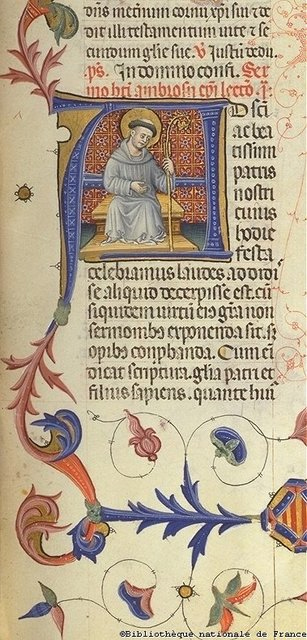 dit illi testamentum uite ⁊ se
cūdum glie sue. V Iusti dedu.
ps. In domino confi. Ser
mo bti ambrosii epi lectō. i.
A D sci
ac bea
tissimi
patris
nostri
cuius
hodie
festa
celebramus laudes addidi
sse aliquid decerpsisse est. cū
siquidem uirtutū eiꝰ grā non
sermonibꝰ exponenda sit. sꝫ
opibꝰ conprobanda. Cum ei
dicat scriptura. glia patris ē
filius sapiens. quante huiꝰ
©Bibliothèque nationale de France